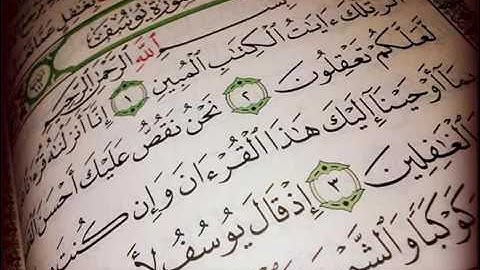 سُورَةُ يُوسُفَ
ٱللَّهِ ٱلرَّحْمَٰنِ ٱلرَّحِيمِ
الٓر تِلْكَ ءَايَٰتُ ٱلْكِتَٰبِ ٱلْمُبِينِ ١ إِنَّآ أَنزَلْنَٰهُ قُرْءَٰنًا
لَّعَلَّكُمْ تَعْقِلُونَ ٢ نَحْنُ نَقُصُّ عَلَيْكَ أَحْسَنَ
بِمَآ أَوْحَيْنَآ إِلَيْكَ هَٰذَا ٱلْقُرْءَانَ وَإِن كُنتَ
ٱلْغَٰفِلِينَ ٣ إِذْ قَالَ يُوسُفُ
كَوْكَبًا وَٱلشَّمْسَ